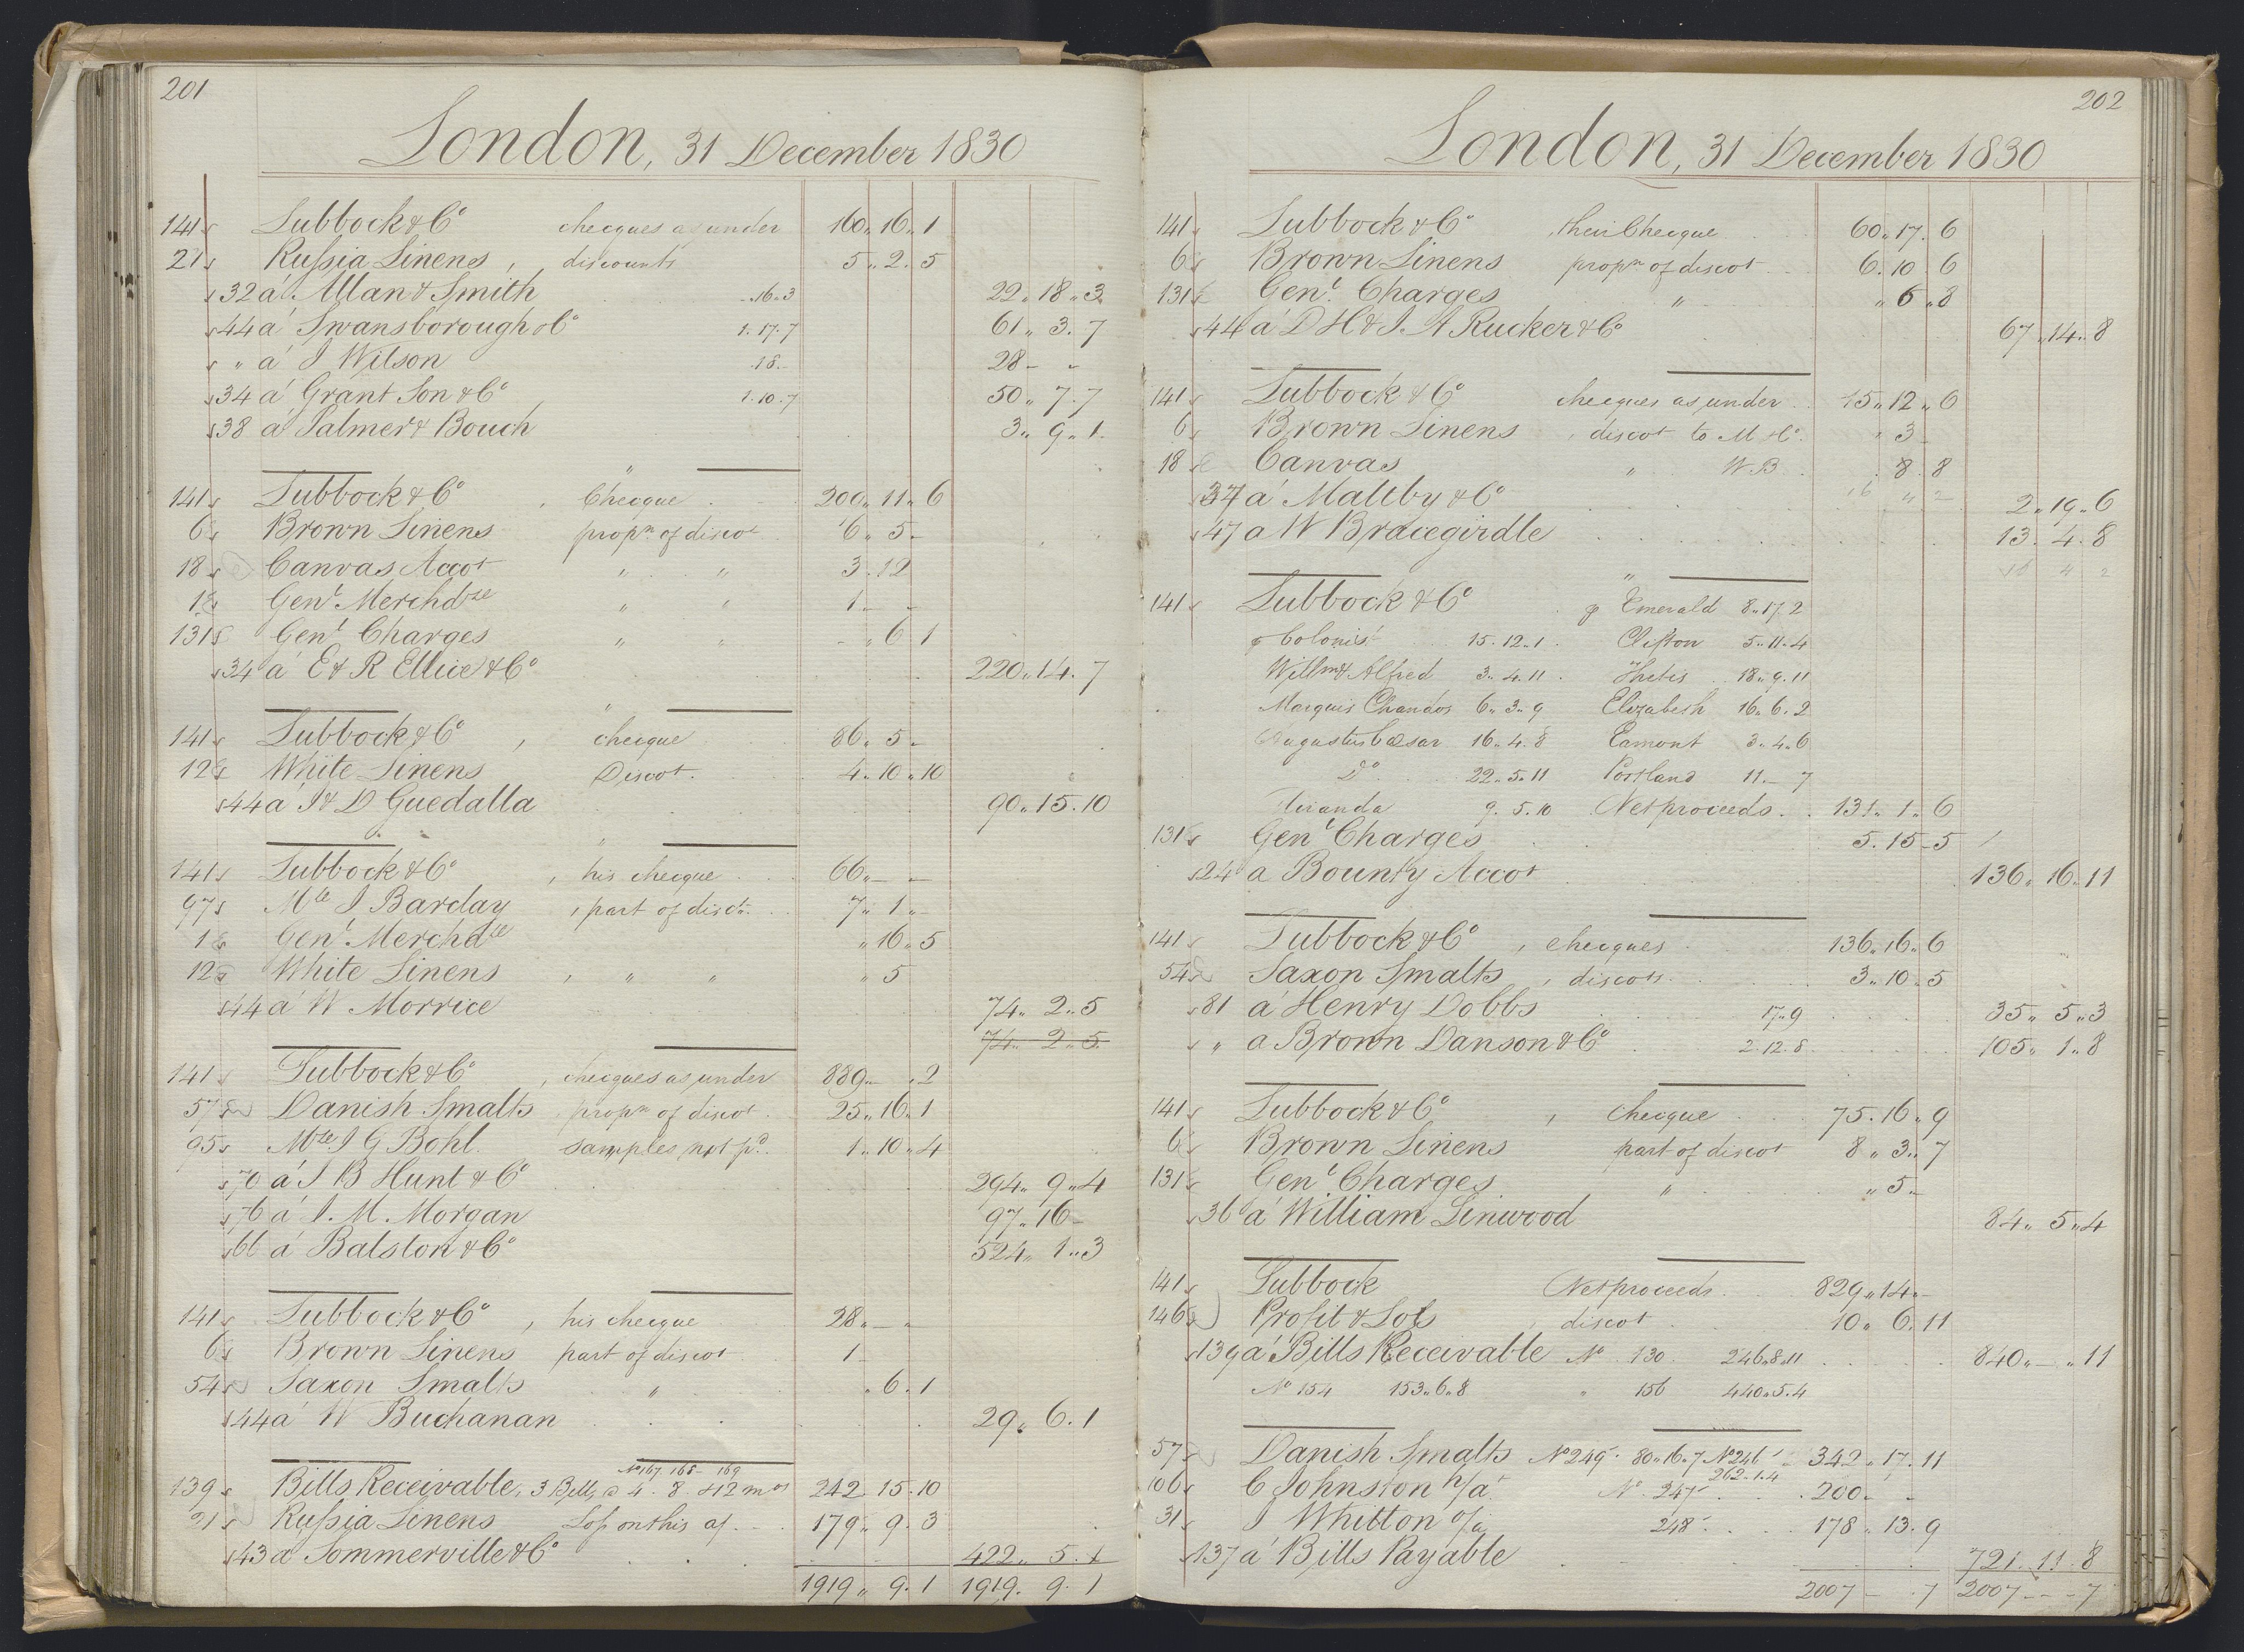 201
London, 31 December 1830
141 Lubbock & Co checques as under 160 " 16 " 1
21 Russia Linens , discounts 5 " 2 . 5
32 a Allan & Smith " 16 " 3 22 " 18 " 3
44 a Swansborough & Co 1 . 17 . 7 61 " 3 . 7
" a J Wilson 18 . - 28 - "
34 a Grant Son & Co 1 . 10 . 7 50 " 7 . 7
38 a Palmer & Bouch 3 " 9 " 1
"
141 Lubbock & Co , Checque 200 " 11 " 6
6 Brown Linens propn of discot 6 " 5 -
18 Canvas Accot " " 3 . 12
1 Genl Merchdze " " 1 - -
131 Genl Charges " " - " 6 1
34 a E & R Ellice & Co 220 " 14 . 7
"
141 Lubbock & Co , checque 86 " 5 -
12 White Linens Discot. 4 . 10 " 10
44 a J & D Guedalla 90 " 15 . 10
"
141 Lubbock & Co , his checque 66 " - -
97 Mdse J Barclay , part of disct. 7 " 1 " -
1 Genl Merchdze " 16 " 5
12 White Linens , " " " 5
44 a W Morrice 74 " 2 " 5
74 " 2 " 5
141 Lubbock & Co , checques as under 889 " - " 2
57 Danish Smalts propn of discot 25 " 16 " 1
95 Mdse J G Bohl. samples not pd. 1 " 10 " 4
70 a J B Hunt & Co 294 " 9 " 4
76 a J. M. Morgan 97 " 16 -
66 a Balston & Co 524 " 1 " 3
141 Lubbock & Co , his checque 28 " - "
6 Brown Linens part of discot 1 -
54 Saxon Smalts " " 6 . 1
44 a W Buchanan 29 " 6 . 1
No 167. 168 - 169
139 Bills Receivable, 3 Bills @ 4 . 8 . & 12 mos 242 15 . 10
21 Russia Linens Loss on this a/ 179 " 9 . 3
43 a Sommerville & Co 422 " 5 . 1
1919 " 9 . 1 1919 . 9 . 1
202
London, 31 December 1830
141 Lubbock & Co , their Checque 60 " 17 . 6
6 Brown Linens propn of discot 6 . 10 . 6
131 Genl. Charges " " 6 " 8
44 a D H & J. A Rucker & Co 67 " 14 " 8
141 Lubbock & Co checques as under 15 " 12 " 6
6 Brown Linens , discot to M & Co. " 3 -
18 Canvas " W. B . 8 . 8
16 4 2
37 a Maltby & Co 2 " 19 " 6
47 a W Bracegirdle 13 . 4 . 8
4 2
"
141 Lubbock & Co p Emerald 8 " 17 . 2
p Colonist 15 . 12 . 1 . Clifton 5 " 11 " 4
Willm & Alfred 3 " 4 . 11 . Thetis 18 " 9 . 11
Marquis Chandos 6 " 3 " 9 Elizabeth 16 " 6 . 2
Augustus Cæsar 16 " 4 . 8 Eamont 3 " 4 " 6
Do 22 " 5 " 11 Portland 11 . - 7
Miranda 9 . 5 . 10 Net proceeds 131 " 1 " 6
131 Genl Charges 5 . 15 - 5
24 a Bounty Accot 136 " 16 " 11
141 Lubbock & Co , checques 136 " 16 " 6
54 Saxon Smalts , discots 3 " 10 . 5
81 a Henry Dobbs 17 " 9 35 " 5 " 3
" a Brown Danson & Co 2 . 12 . 8 105 " 1 " 8
141 Lubbock & Co , Checque 75 . 16 " 9
6 Brown Linens part of discot 8 " 3 " 7
131 Genl Charges " " 5 -
36 a William Linwood 84 " 5 " 4
141 Lubbock Net proceeds 829 " 14 " -
146 Profit & Loss , discot 10 " 6 . 11
139 a Bills Receivable No 130 . 246 " 8 " 11 840 " - " 11
No 154 153 " 6 " 8 " 156 440 " 5 . 4
57 Danish Smalts No 249 . 80 " 16 " 7 No 246 342 " 17 . 11
262 - 1 . 4
106 C Johnston n/a No 247 200 - -
31 J Whitton o/a 248 178 " 13 . 9
137 a Bills Payable 721 . 11 . 8
2007 - . 7 2007 - - 7